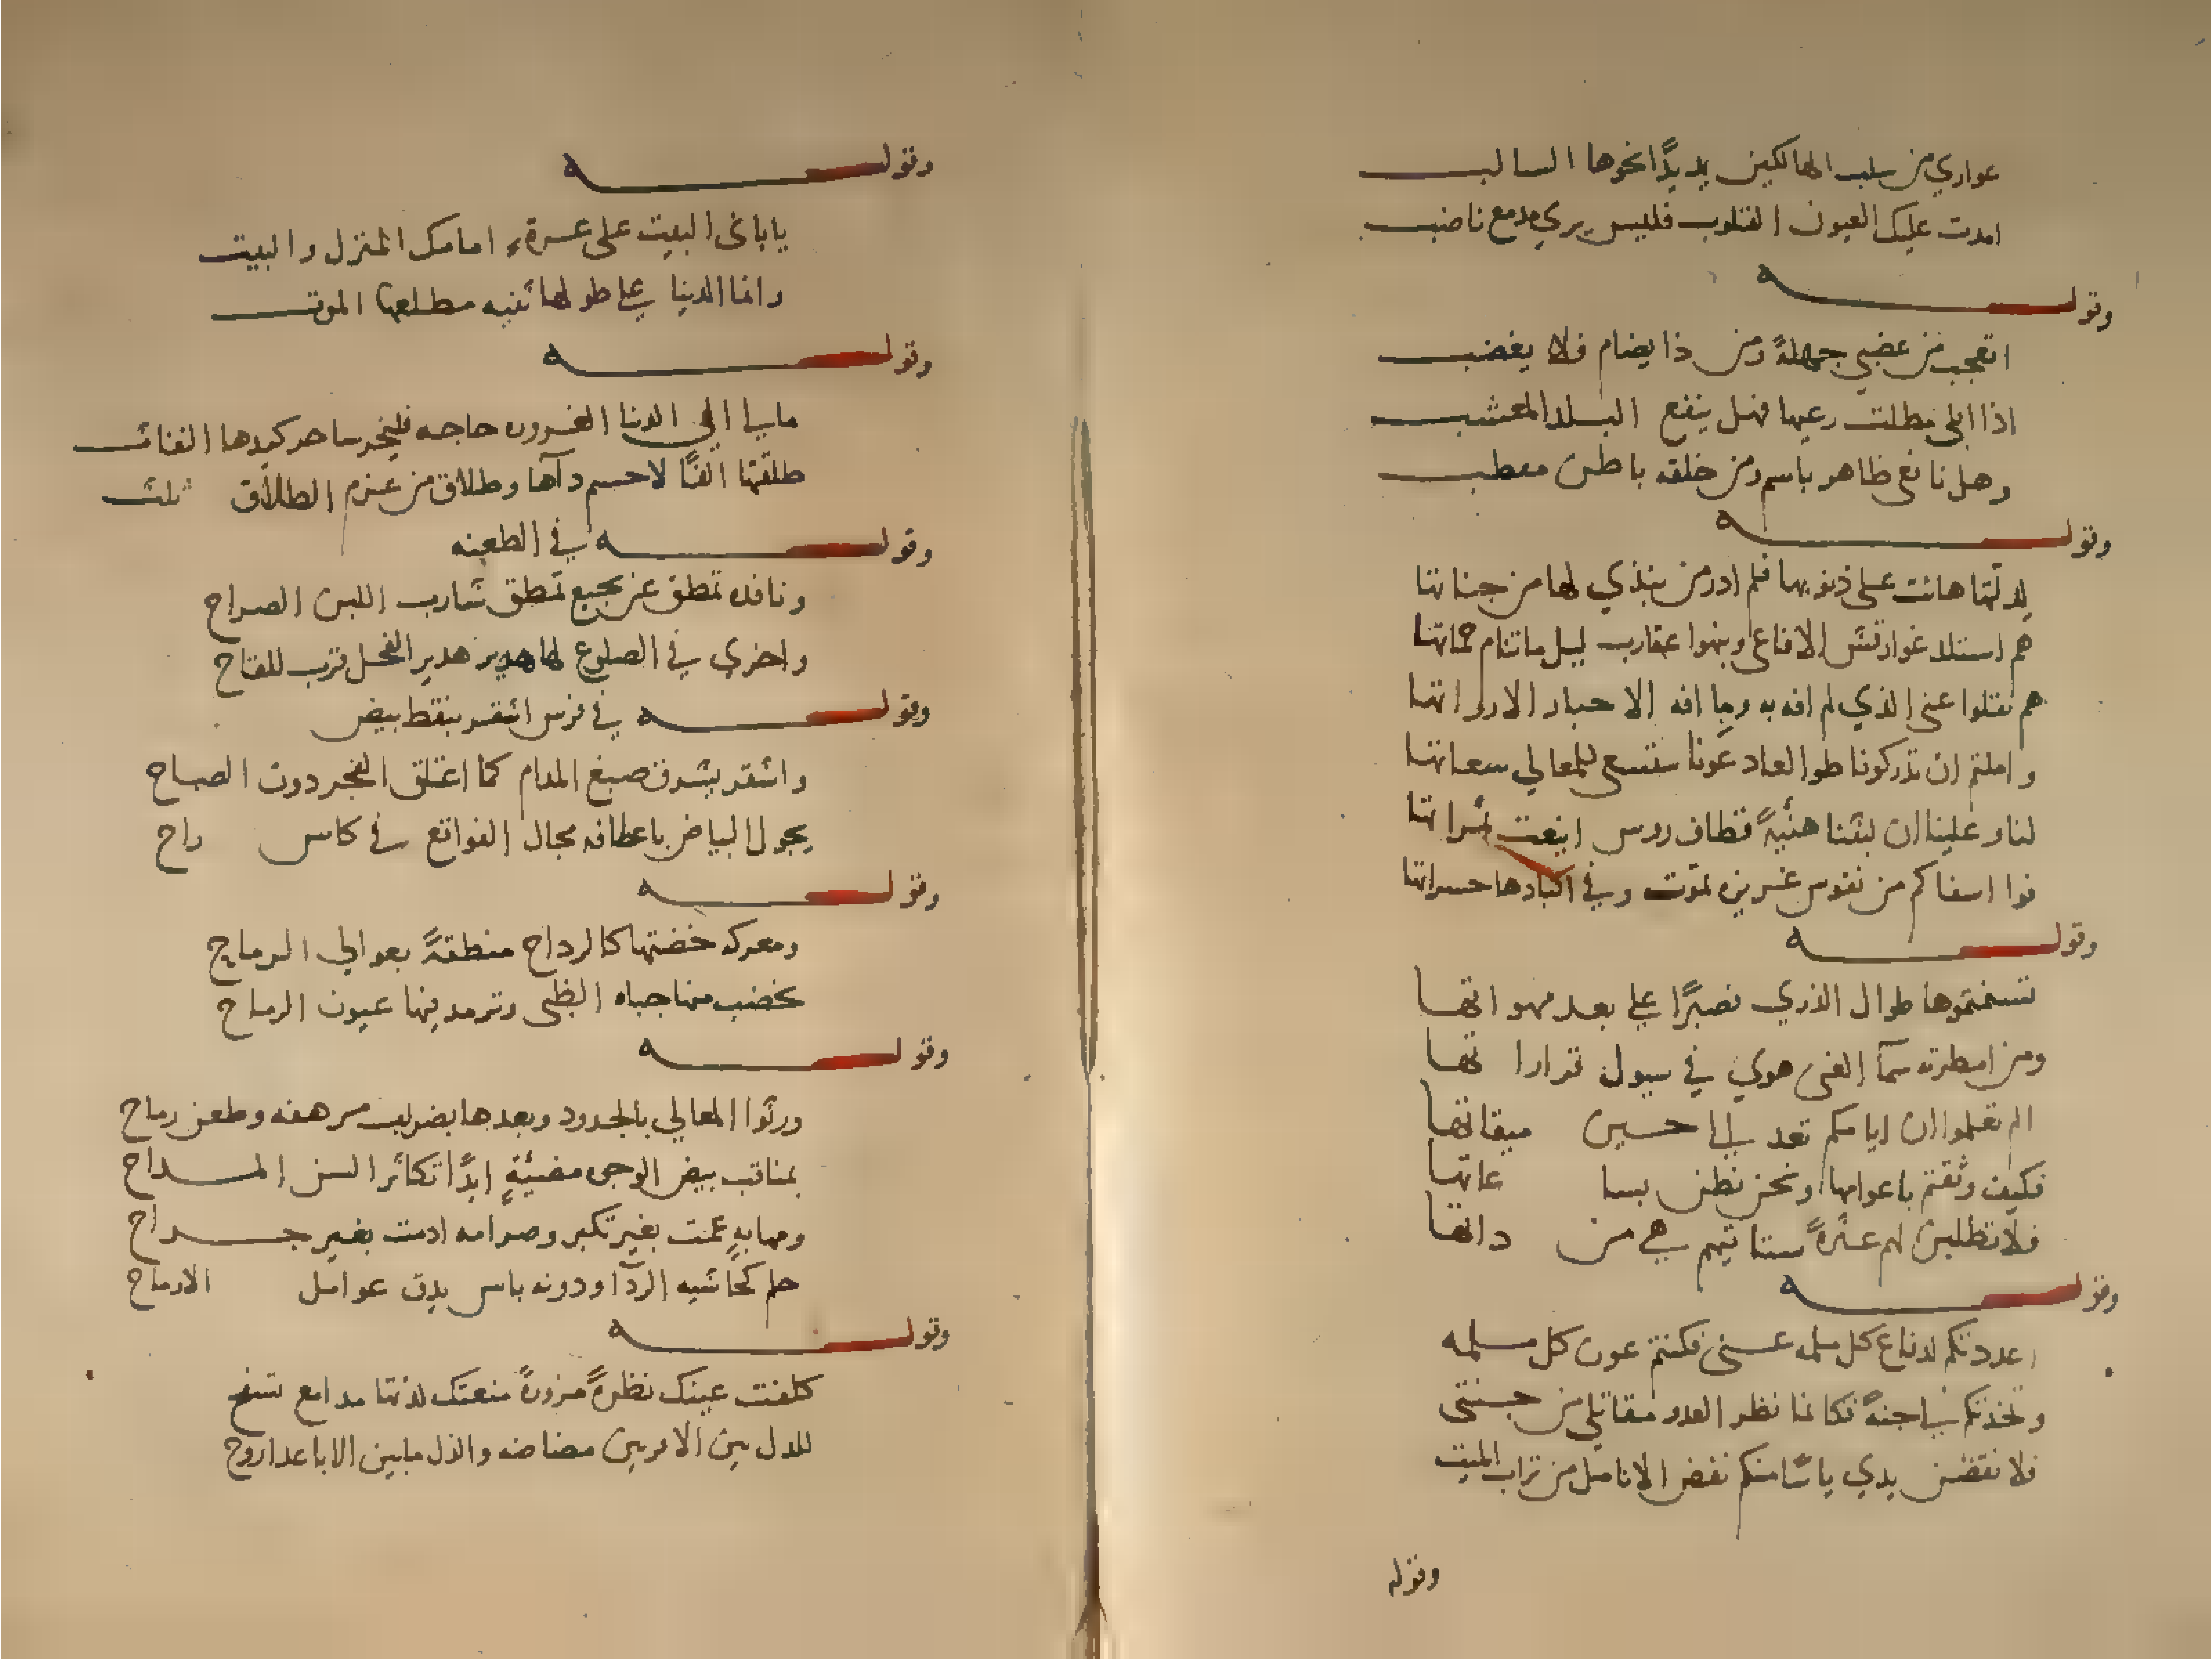 عواري من سلب الهالكين يد يدًا نحوها السالب
امدت عليك العيون القلوب فليس يري مدمع ناضب
وقوله
اتعجب من غضبي جهلةً ومن ذا يضام فلا يغضب
اذا ابلي مطلت رعيها فهل ينفع البلد المعشب
وهل نافع ظاهر باسم ومن خلفه باطن معطب
وقوله
هانت على ذنوبها فلم ادر من لها من جناتنا
هم الافاعي ونبهوا عقارب ليل ماتنام حماتها
هم نقلوا عني الذي لم افه به وما افه الاخبار الا رواتها
واملتم ان تدركونا طوالعاد عونا ستسعي للمعالي سعاتها
لنا وعلينا ان لبثنا هنيةً قطاف روس اينعت ثمراتها
فوا اسفاكم من نفوس عزيزه تموت وفي اكبادها حسراتها
وقوله
تسنمتموها طوال الذري فصبرًا على بعد مهواتها
ومن امطرته سمآ الغنى هوي في سيول قراراتها
الم تعلموا ان ايامكم تعد لي احين ميقاتها
فكيف وثقتم باعوامها ونحن نظن بساعاتها
فلا تطلبن لهم عثرةً ستاتيهم هي من ذاتها
وقوله
اعددتكم لدفاع كل ملمه عني فكنتم عون كل ملمه
وتخذتكم لي جنةً فكانما نظر العدو مقاتلي من جنتي
فلانفضن يدي ياسًا منكم نفض الانامل من تراب الميت
وقوله
وقوله
يابانى البيت على عزة امامك المنزل والبيت
وانما الدنيا على طولها ثنيه مطلعها الموت
وقوله
مابي الي الدنيا الغرور حاجه فليخز ساحر كيدها النفاث
طلقتها الفًا لاحسم دآها وطلاق من عزم الطلاق ثلث
وقوله في الطعنه
ونافذه تمطق عن نجيع تمطق شارب اللبن الصراح
واخري في الضلوع لها هدير هدير الفحل قرب للقاح
وقوله في فرس اشقر بنقط بيض
واشقر يشرق صبغ المدام كما اعتلق الفجر دون الصباح
يجول البياض باعطافه مجال الفواقع في كاس راح
وقوله
ومعركه خضتها كالرداح منطقةً بعوالي الرماح
تخضب منها جباه الظبى وترمد فيها عيون الرماح
وقوله
ورثوا المعالي بالجدود وبعدها بضراب مرهفه وطعن رماح
بمناقب بيض الوجى مضيئةٍ ابدًا تكاثر السن المداح
ومهابهٍ عمت بغير تكبر وصرامه ادمت بغير جراح
حلم كحاشيه الردآ ودونه باس يدق عوامل الارماح
وقوله
كلفت عينك نظرةً مزورةً منعتك لذتها مدامع تسفح
للذل بين الاقربين مضاضه والذل مابين الاباعد اروح